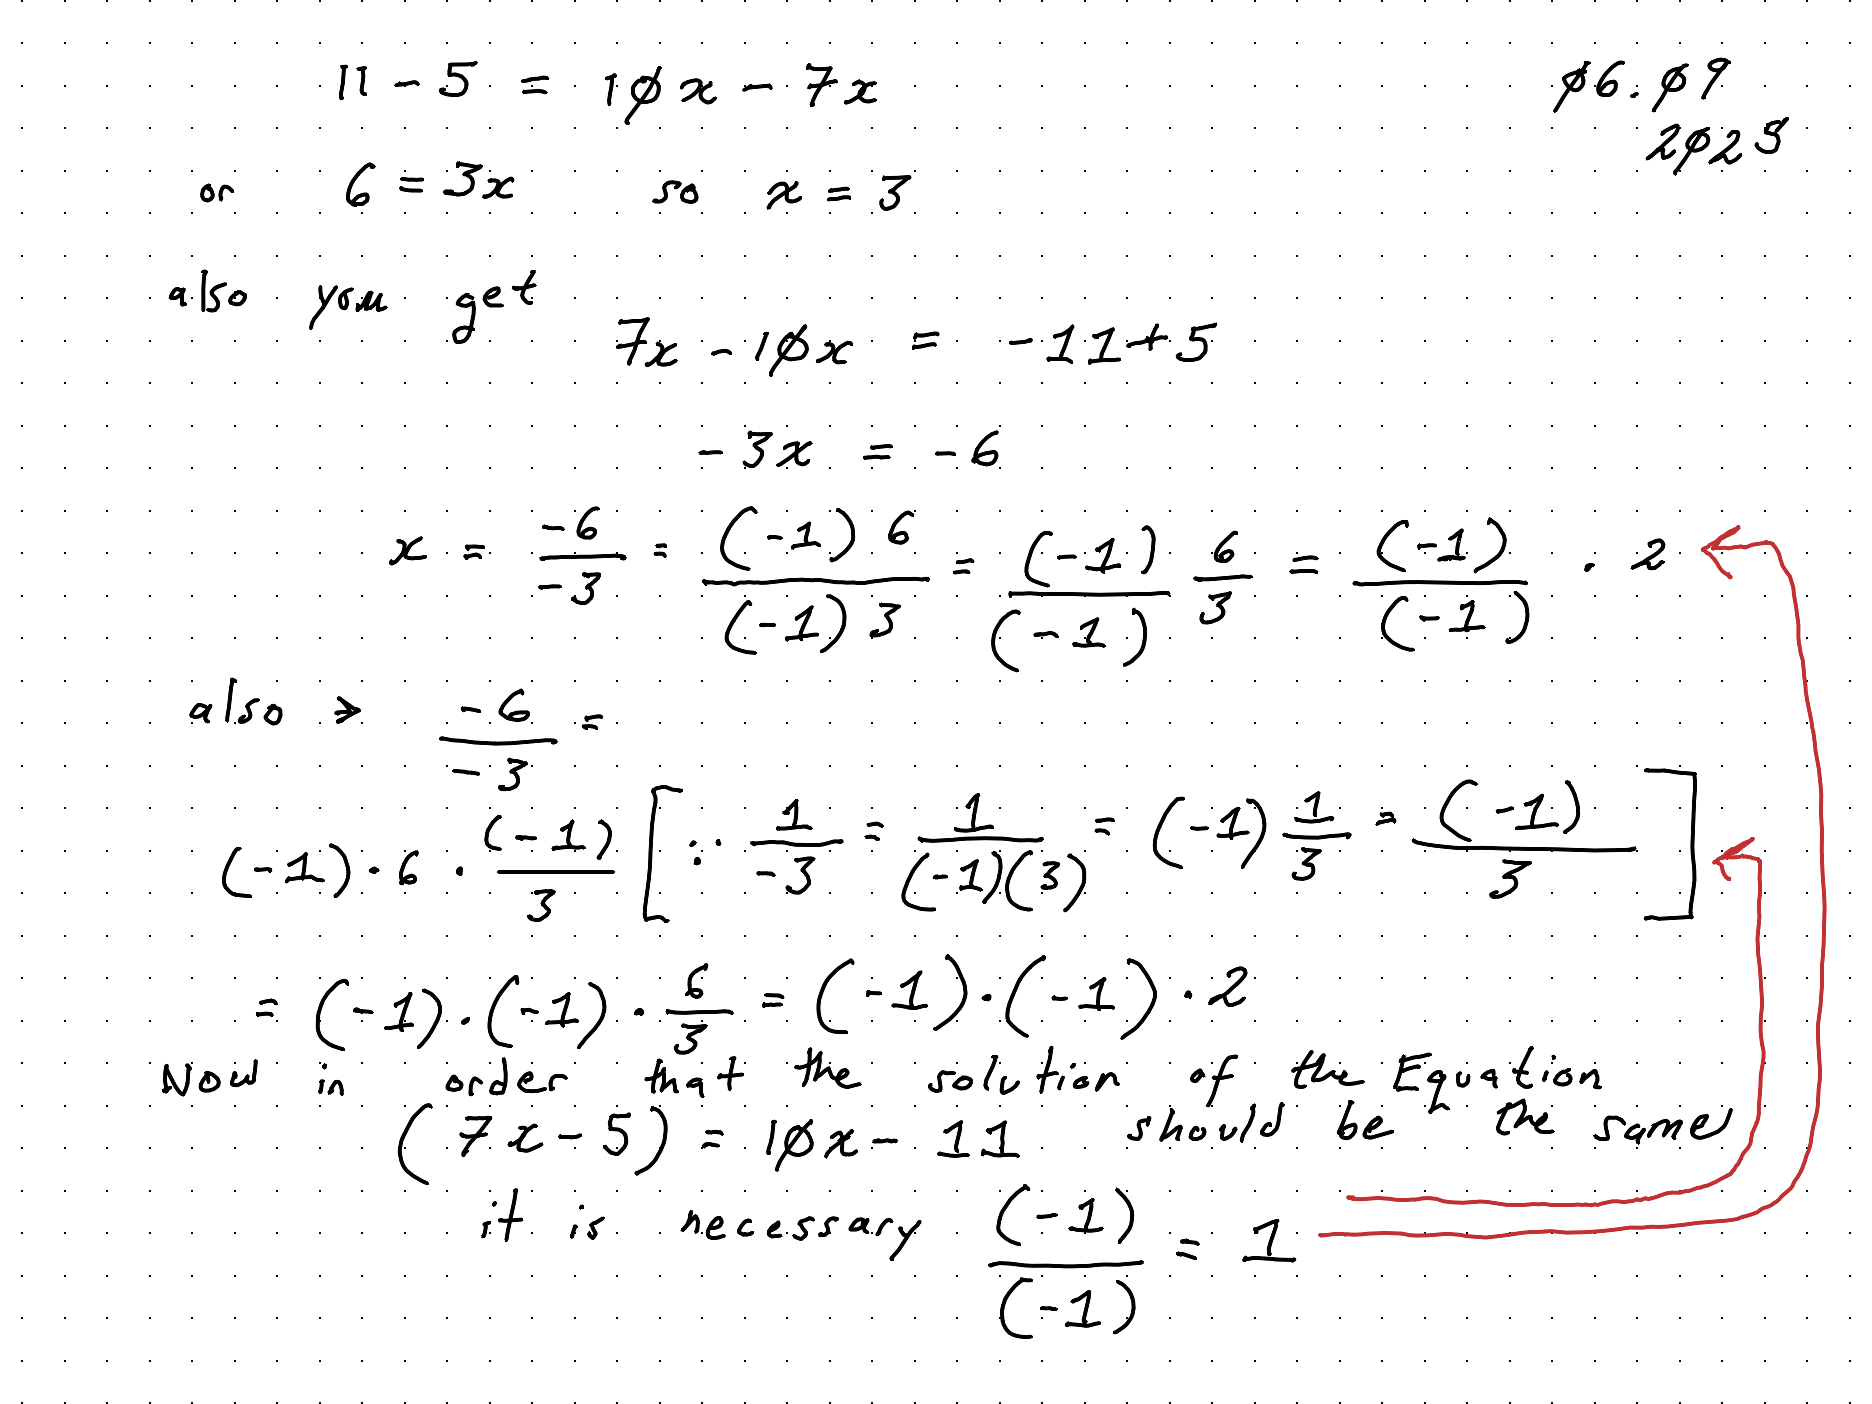 11 - 5 = 10x - 7x
06.09
2025
or 6 = 3x so x = 3
also you get
7x - 10x = -11+5
-3x = -6
x = -6/-3 = (-1)6/(-1)3 = (-1)/(-1) 6/3 = (-1)/(-1) · 2
also → -6/-3 =
(-1)·6·(-1)/3 [∵ 1/-3 = 1/(-1)(3) = (-1) 1/3 = (-1)/3]
= (-1)·(-1)·6/3 = (-1)·(-1)·2
Now in order that the solution of the Equation
(7x-5) = 10x - 11 should be the same
it is necessary (-1)/(-1) = 1